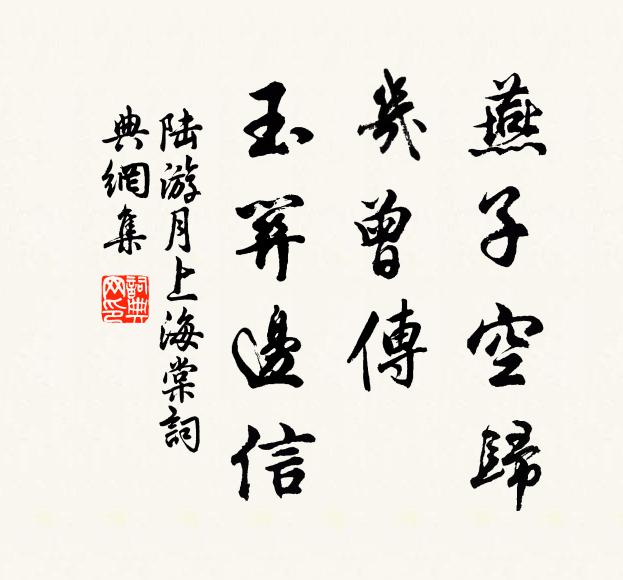 燕子空歸
幾曾傳
玉關邊信
陆游月上海棠詞
典網集
詞典网印